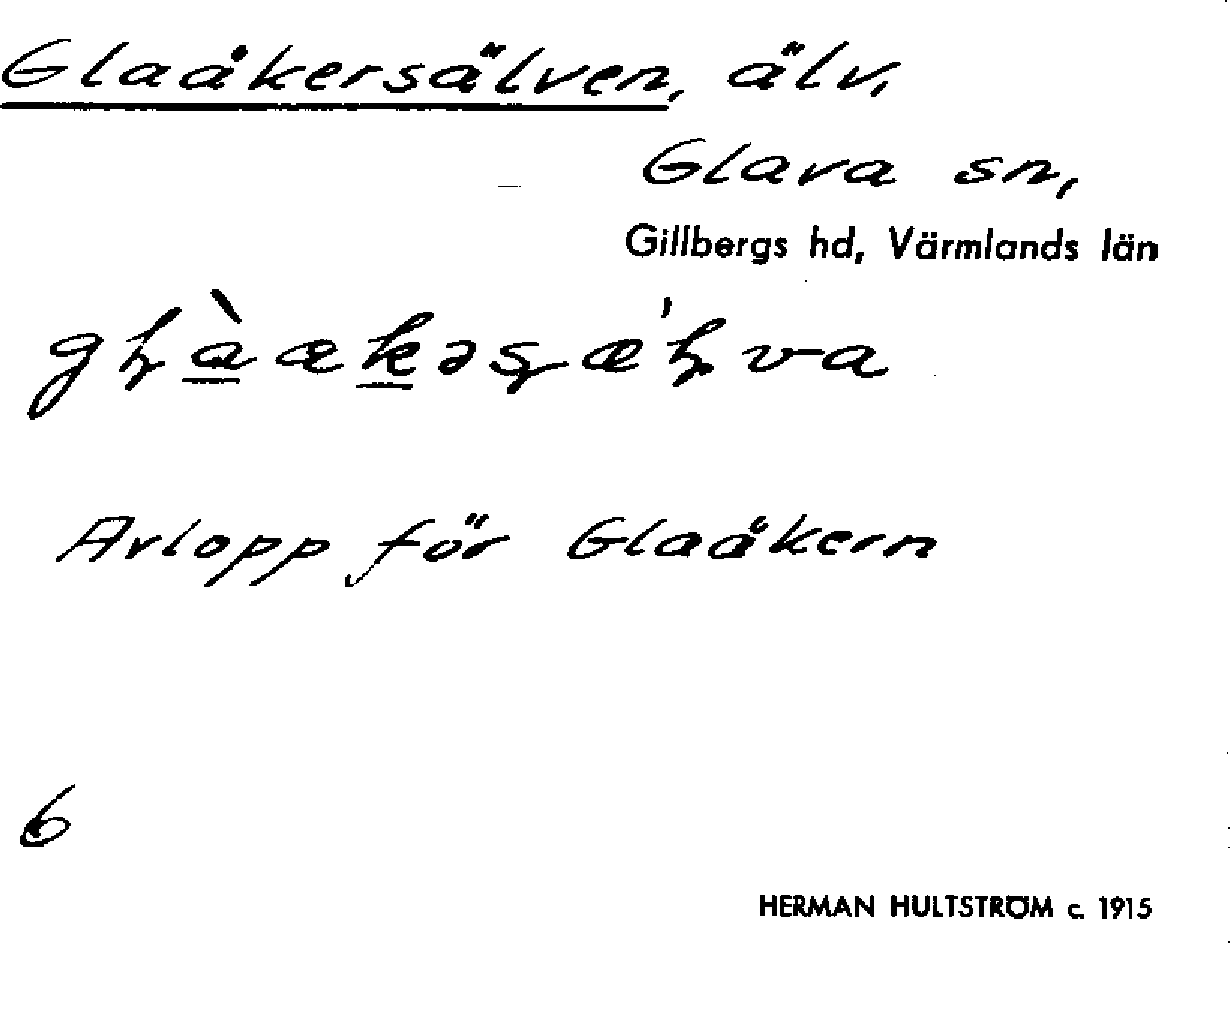 Glaåkersälven, älv,
Glava sn,
Gillbergs hd, Värmlands län
Avlopp för Glaåkern
6
HERMAN HULTSTRÖM c. 1915